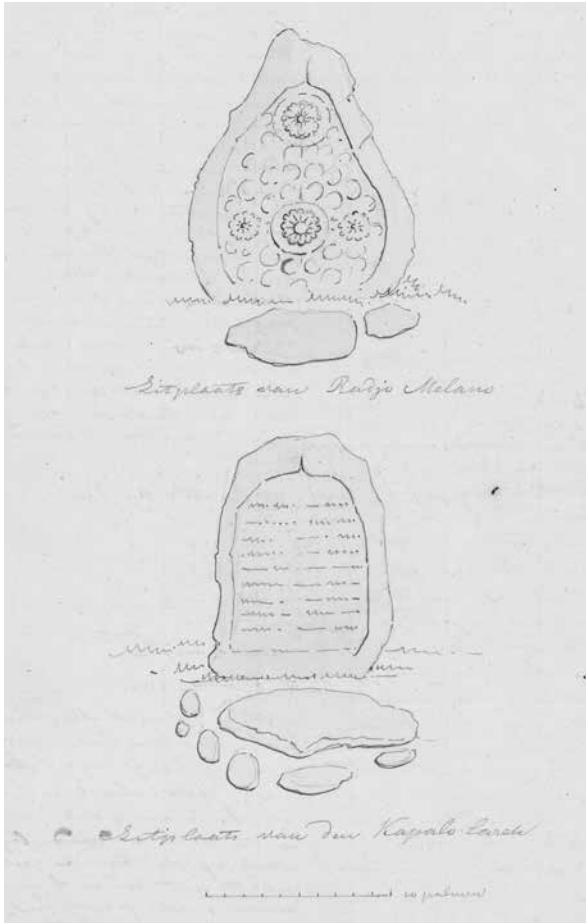 Zitplaats van Radjo Melano
Zitplaats van den Kapalo
10 palmen